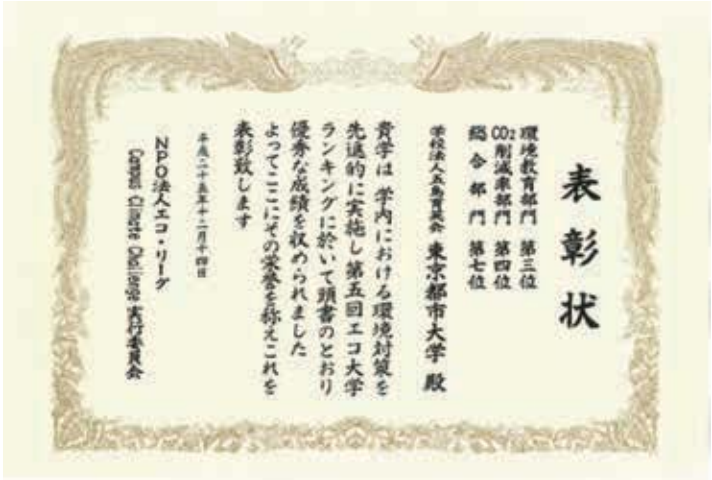 表彰状
環境教育部門 第三位
CO2削減率部門 第四位
総合部門 第七位
学校法人五島育英会 東京都市大学 殿
貴学は 学内における環境対策を
先進的に実施し第五回エコ大学
ランキングに於いて頭書のとおり
優秀な成績を収められました
よってここにその栄誉を称えこれを
表彰致します
平成二十五年十二月十四日
NPO法人エコ・リーグ
Campus Climate Challenge 実行委員会